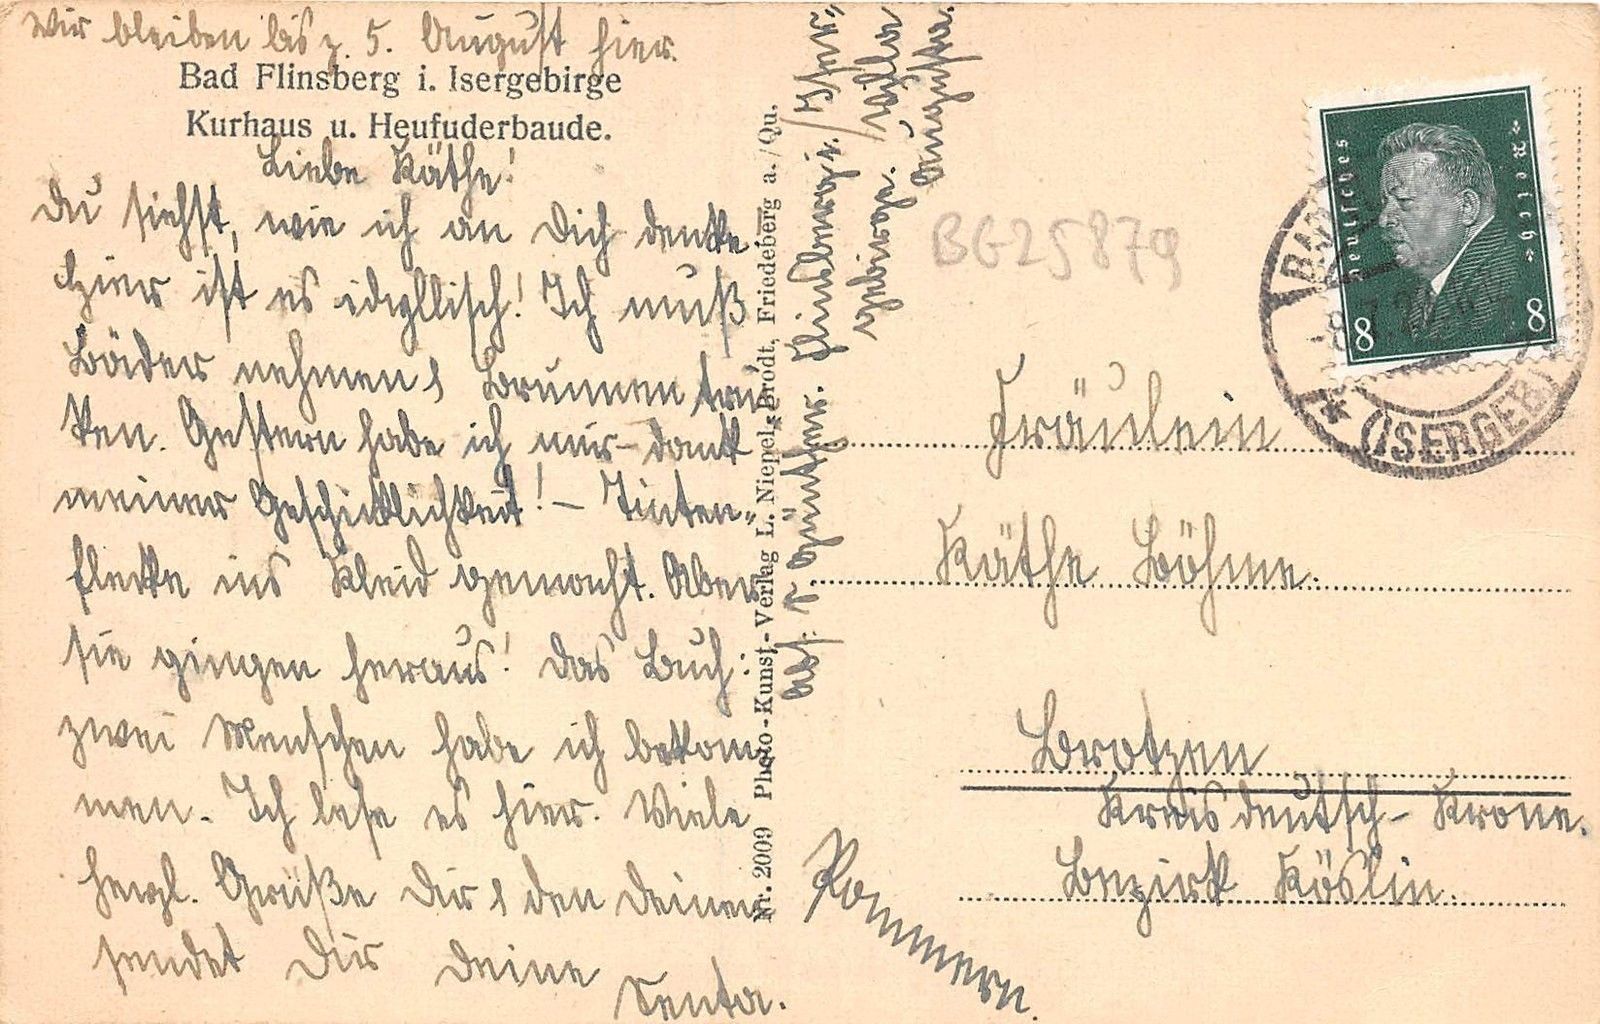 Wir bleiben bis z. 5. August hier.
Bad Flinsberg i. Isergebirge
Kurhaus u. Heufuderbaude.
Liebe Käthe!
Du siehst, wie ich an Dich denke.
Hier ist es idyllisch! Ich muß
Bäder nehmen, Brunnen trin
ken. Gestern habe ich mir – dank
meiner Geschicklichkeit! – Tinten-
flecke ins Kleid gemacht. Aber
sie gingen heraus! Das Buch:
zwei Menschen habe ich bekom
men. Ich lese es hier. Viele
herzl. Grüße Dir, den Deinen
sendet Dir Deine
Senta.
Nr. 2009 Photo-Kunst-Verlag L. Niepel-Brodt, Friedeberg a./Qu.
Abs: S. Günther. Flinsberg i./Iser-
gebirge. Villa
Augusta.
BG25879
Deutsches Reich
8 8
BAD
(ISERGEB)
Fräulein
Käthe Böhme.
Brotzen
Kreis Deutsch-Krone.
Bezirk Köslin.
Pommern.